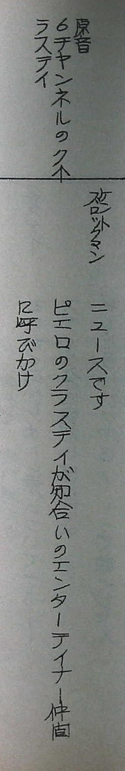 原音
6チャンネルのクラスティ
ケントブロックマン
ニュースです
ピエロのクラスティが知合いのエンターテイナー仲間
に呼びかけ